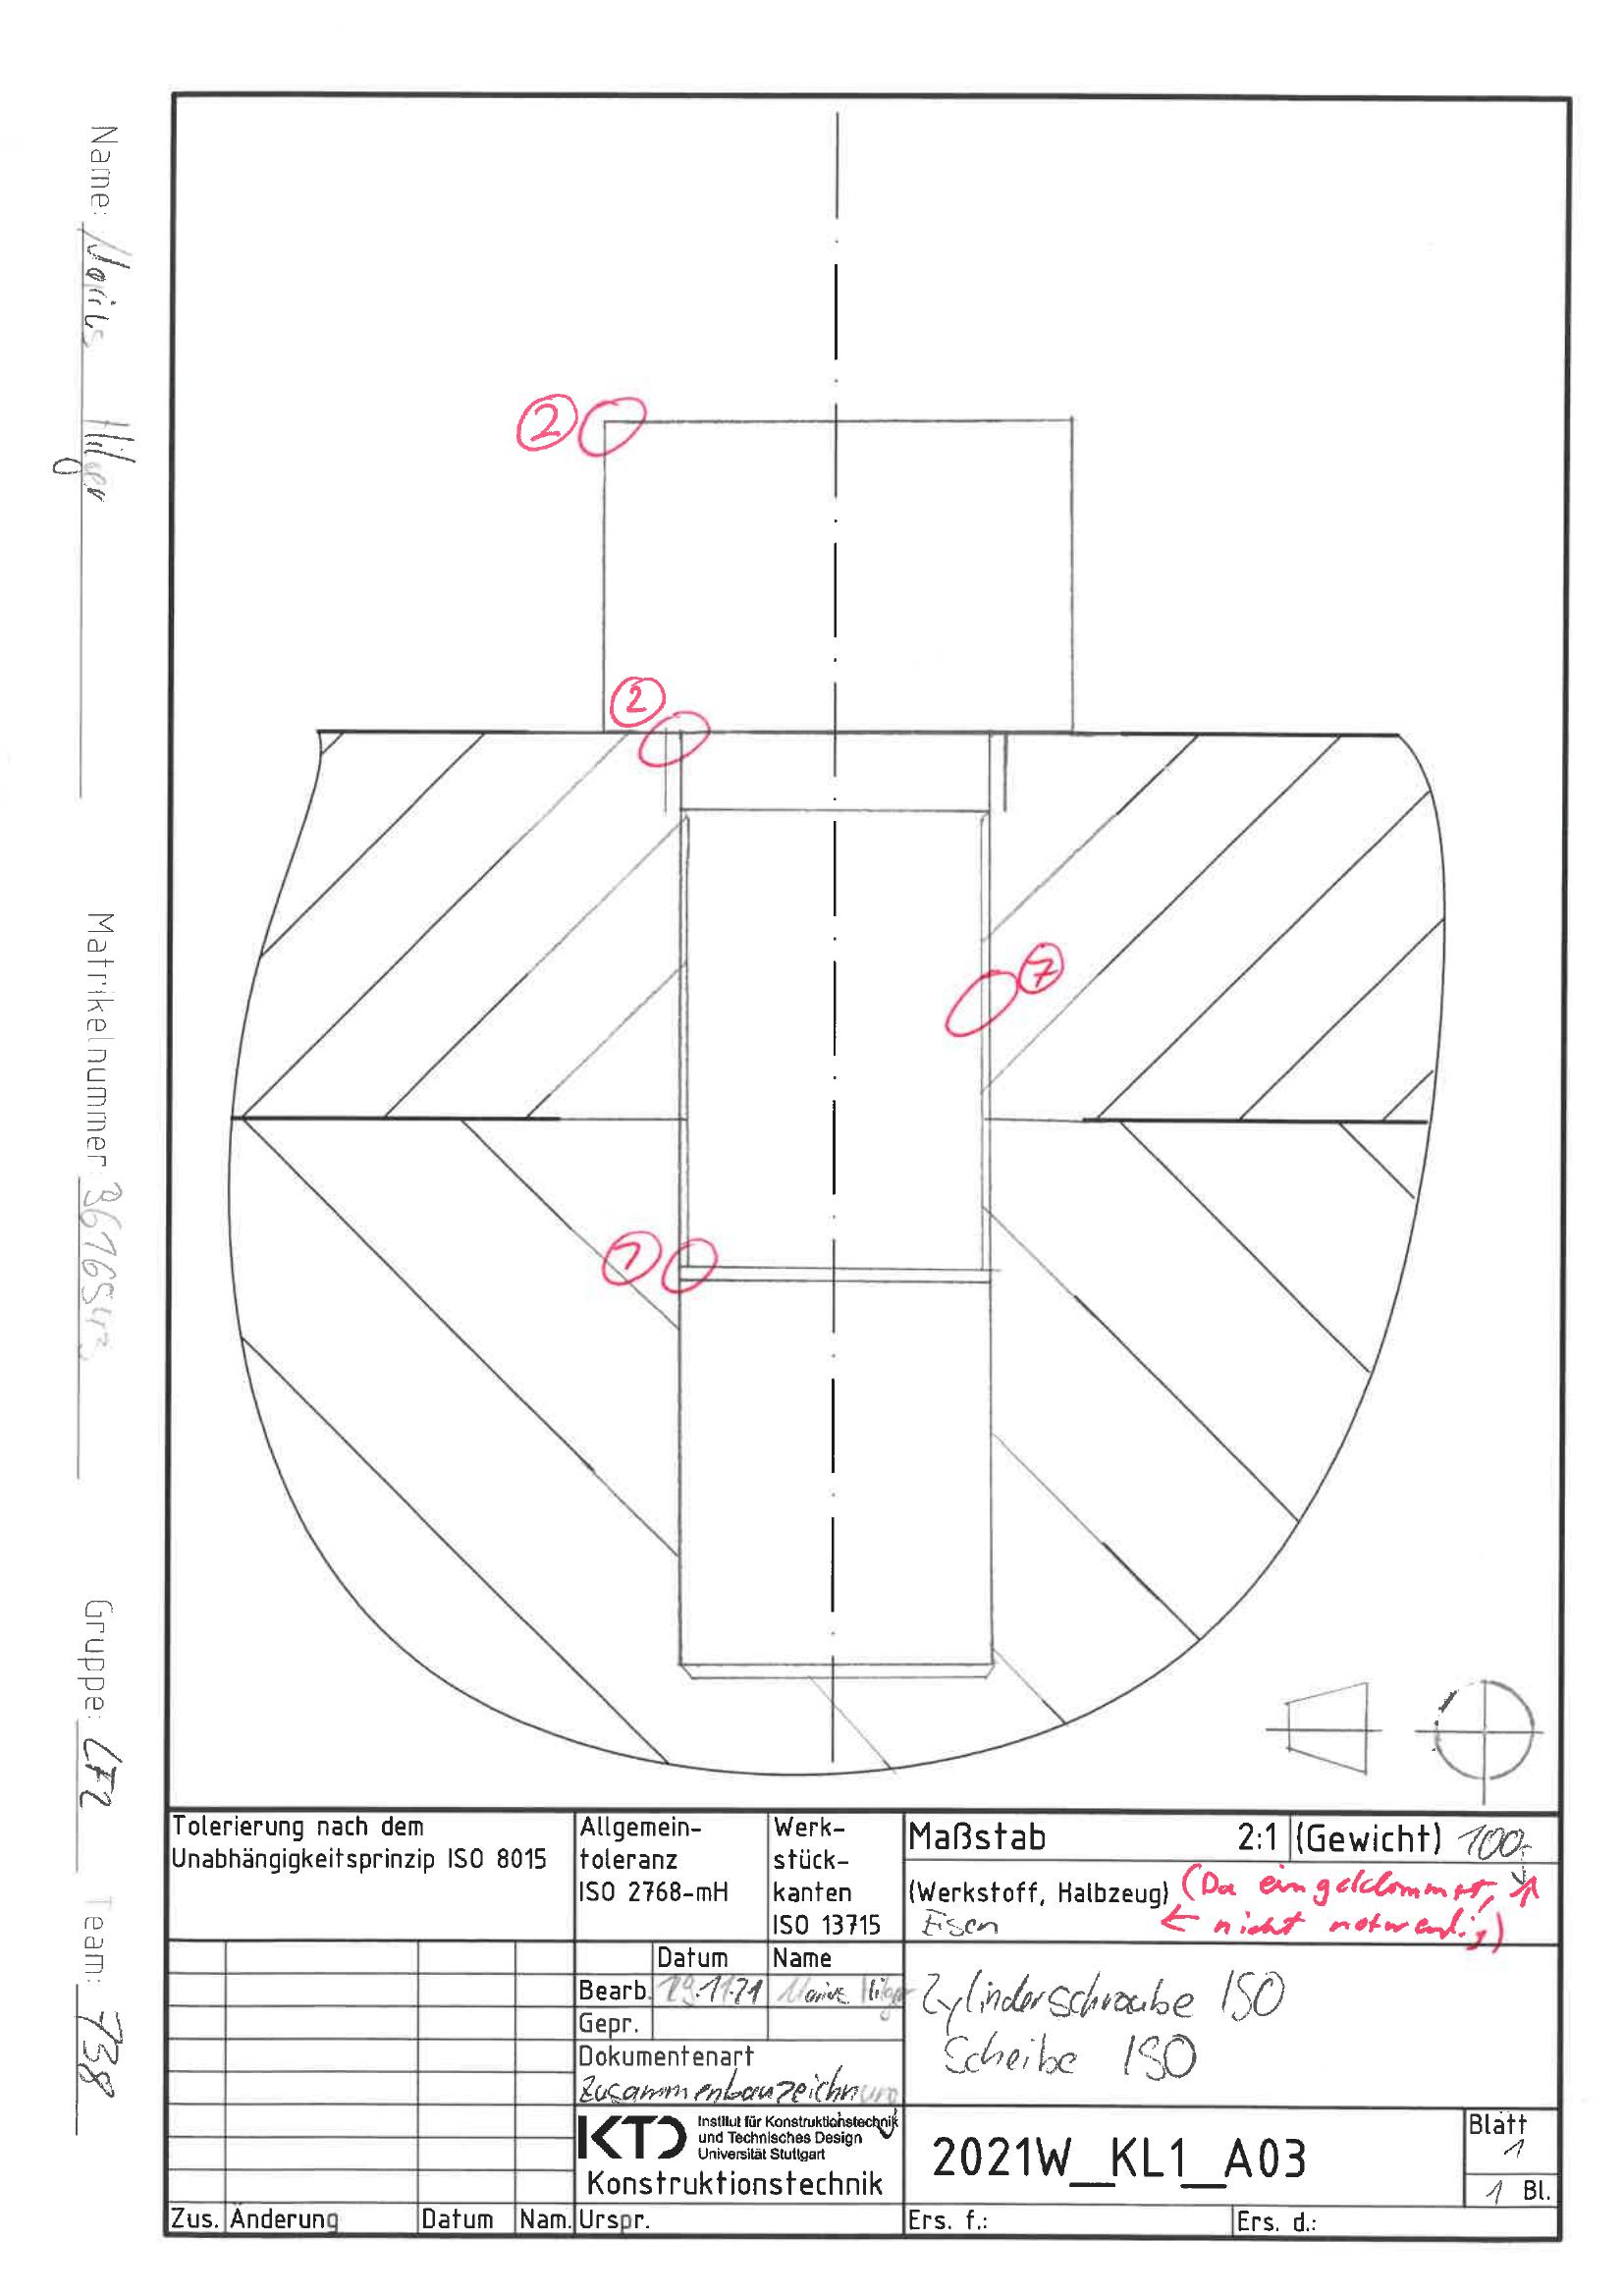 Name: Marius Hilger
Matrikelnummer:
Gruppe: LF2
Team: 738
2
2
7
1
Tolerierung nach dem
Unabhängigkeitsprinzip ISO 8015
Allgemein-
toleranz
ISO 2768-mH
Werk-
stück-
kanten
ISO 13715
Maßstab 2:1 (Gewicht) 100
(Werkstoff, Halbzeug) (Da eingeklammert,
Eisen ← nicht notwendig)
Datum Name
Bearb. 29.11.21 Marius Hilger
Gepr.
Dokumentenart
Zusammenbauzeichnung
Zylinderschraube ISO
Scheibe ISO
KTD Institut für Konstruktionstechnik
und Technisches Design
Universität Stuttgart
Konstruktionstechnik
2021W_KL1_A03
Blatt
1
1 Bl.
Zus. Änderung Datum Nam. Urspr. Ers. f.: Ers. d.: